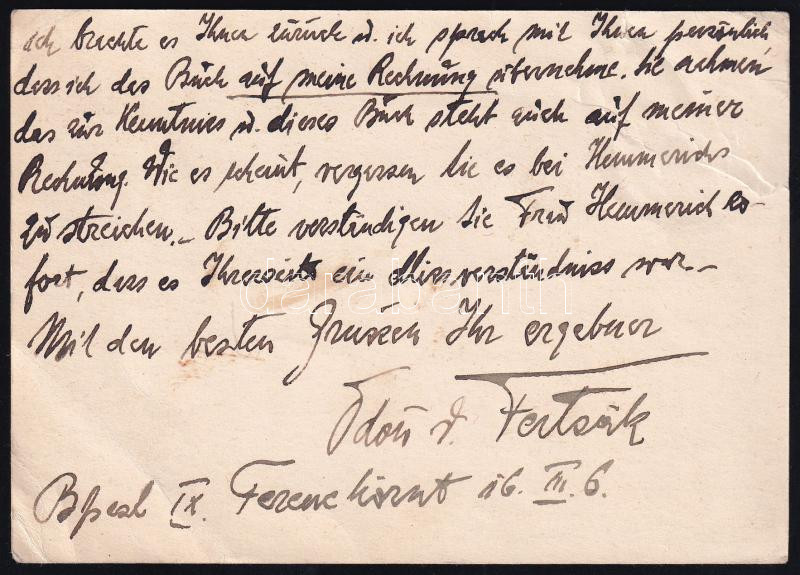 ich brachte es Ihnen zurück u. ich sprach mit Ihnen persönlich
dass ich das Buch auf meine Rechnung übernehme. Sie nahmen
das zur Kenntniss u. dieses Buch steht auch auf meiner
Rechnung. Wie es scheint, vergessen Sie es bei Hemmerichs
zu streichen. – Bitte verständigen Sie Frau Hemmerich so-
fort, dass es Ihrerseits ein Missverständniss war. –
Mit den besten Grüssen Ihr ergebner
Ödön v. Fertsák
Bpest IX. Ferenc körut 16. III. 6.
darabanth